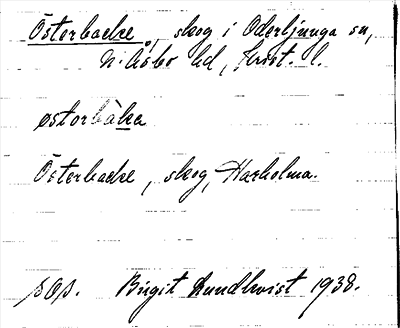 Österbacke, skog i Oderljunga sn,
N. Åsbo hd, Krist. l.
østorbàka
Österbacke, skog, Harholma.
sOs. Birgit Lundkvist 1938.